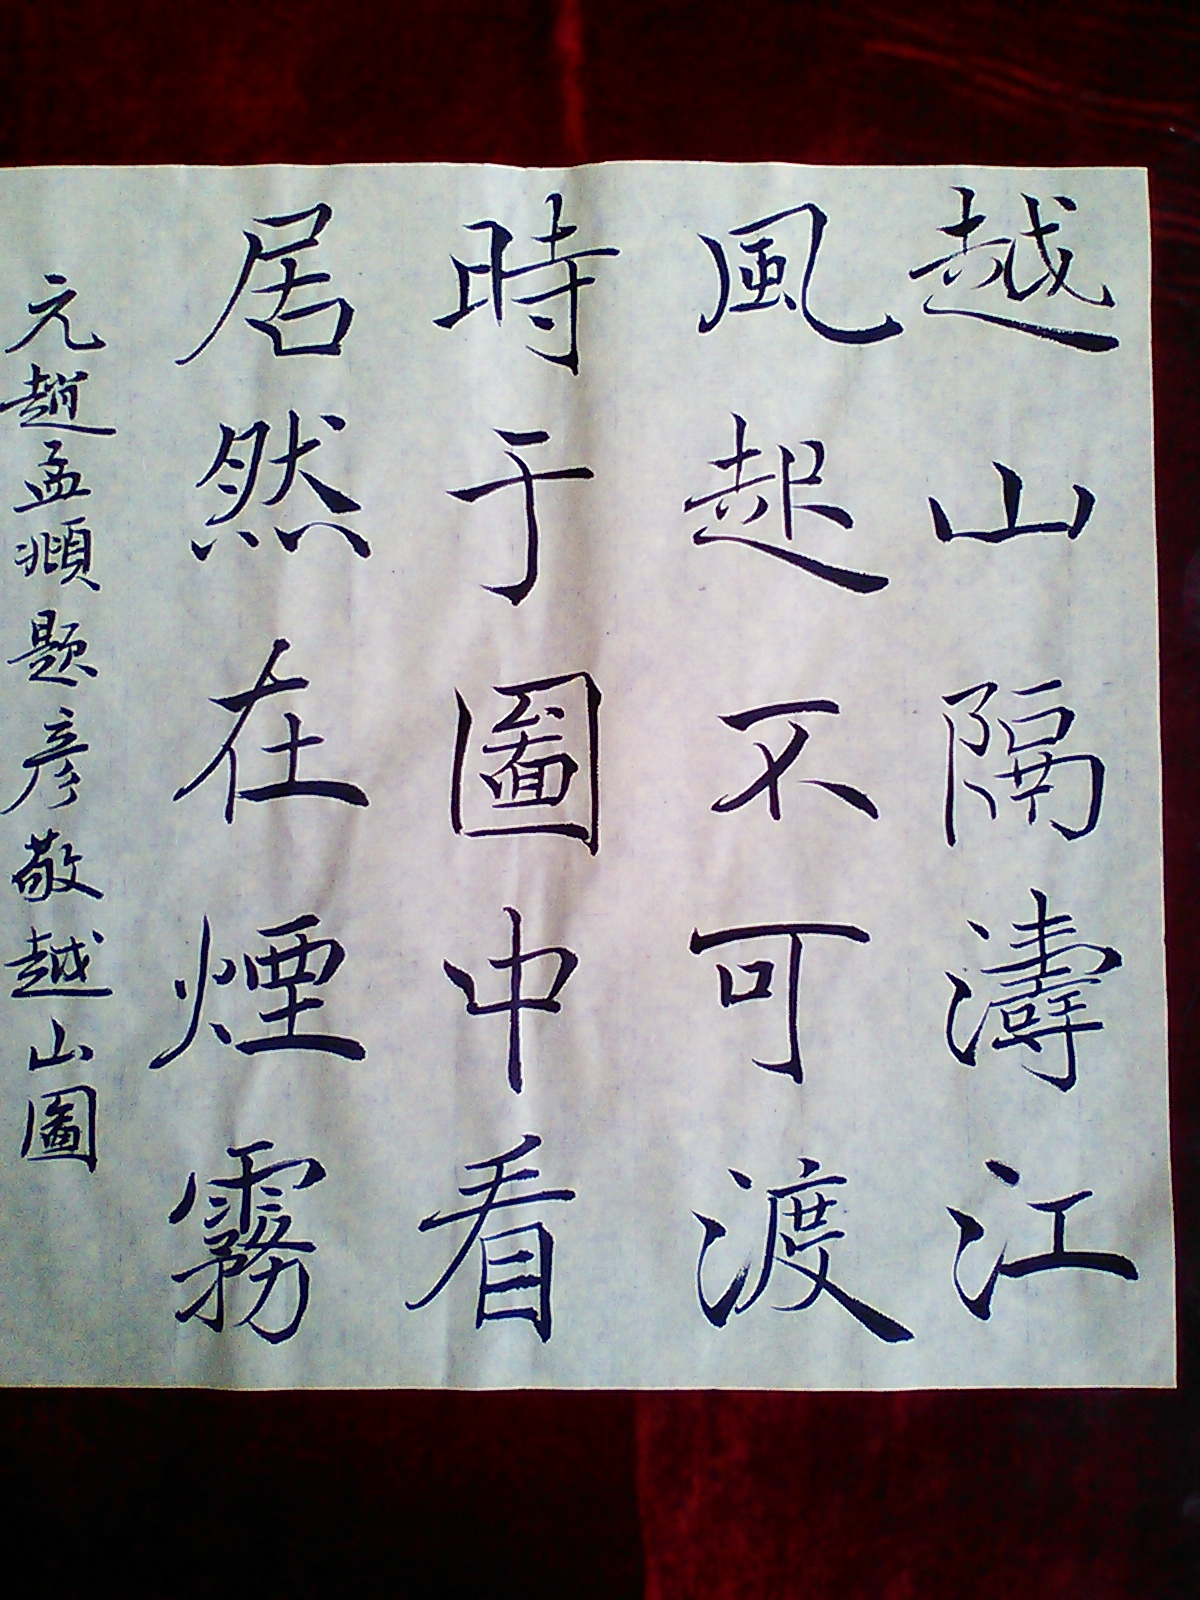 越山隔濤江
風起不可渡
時于圖中看
居然在煙霧
元趙孟頫題彦敬越山圖